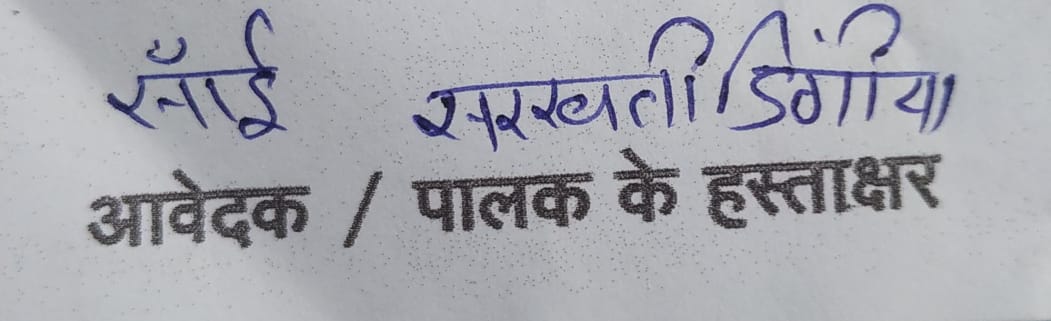 साँई सरस्वती डिंगीया
आवेदक / पालक के हस्ताक्षर